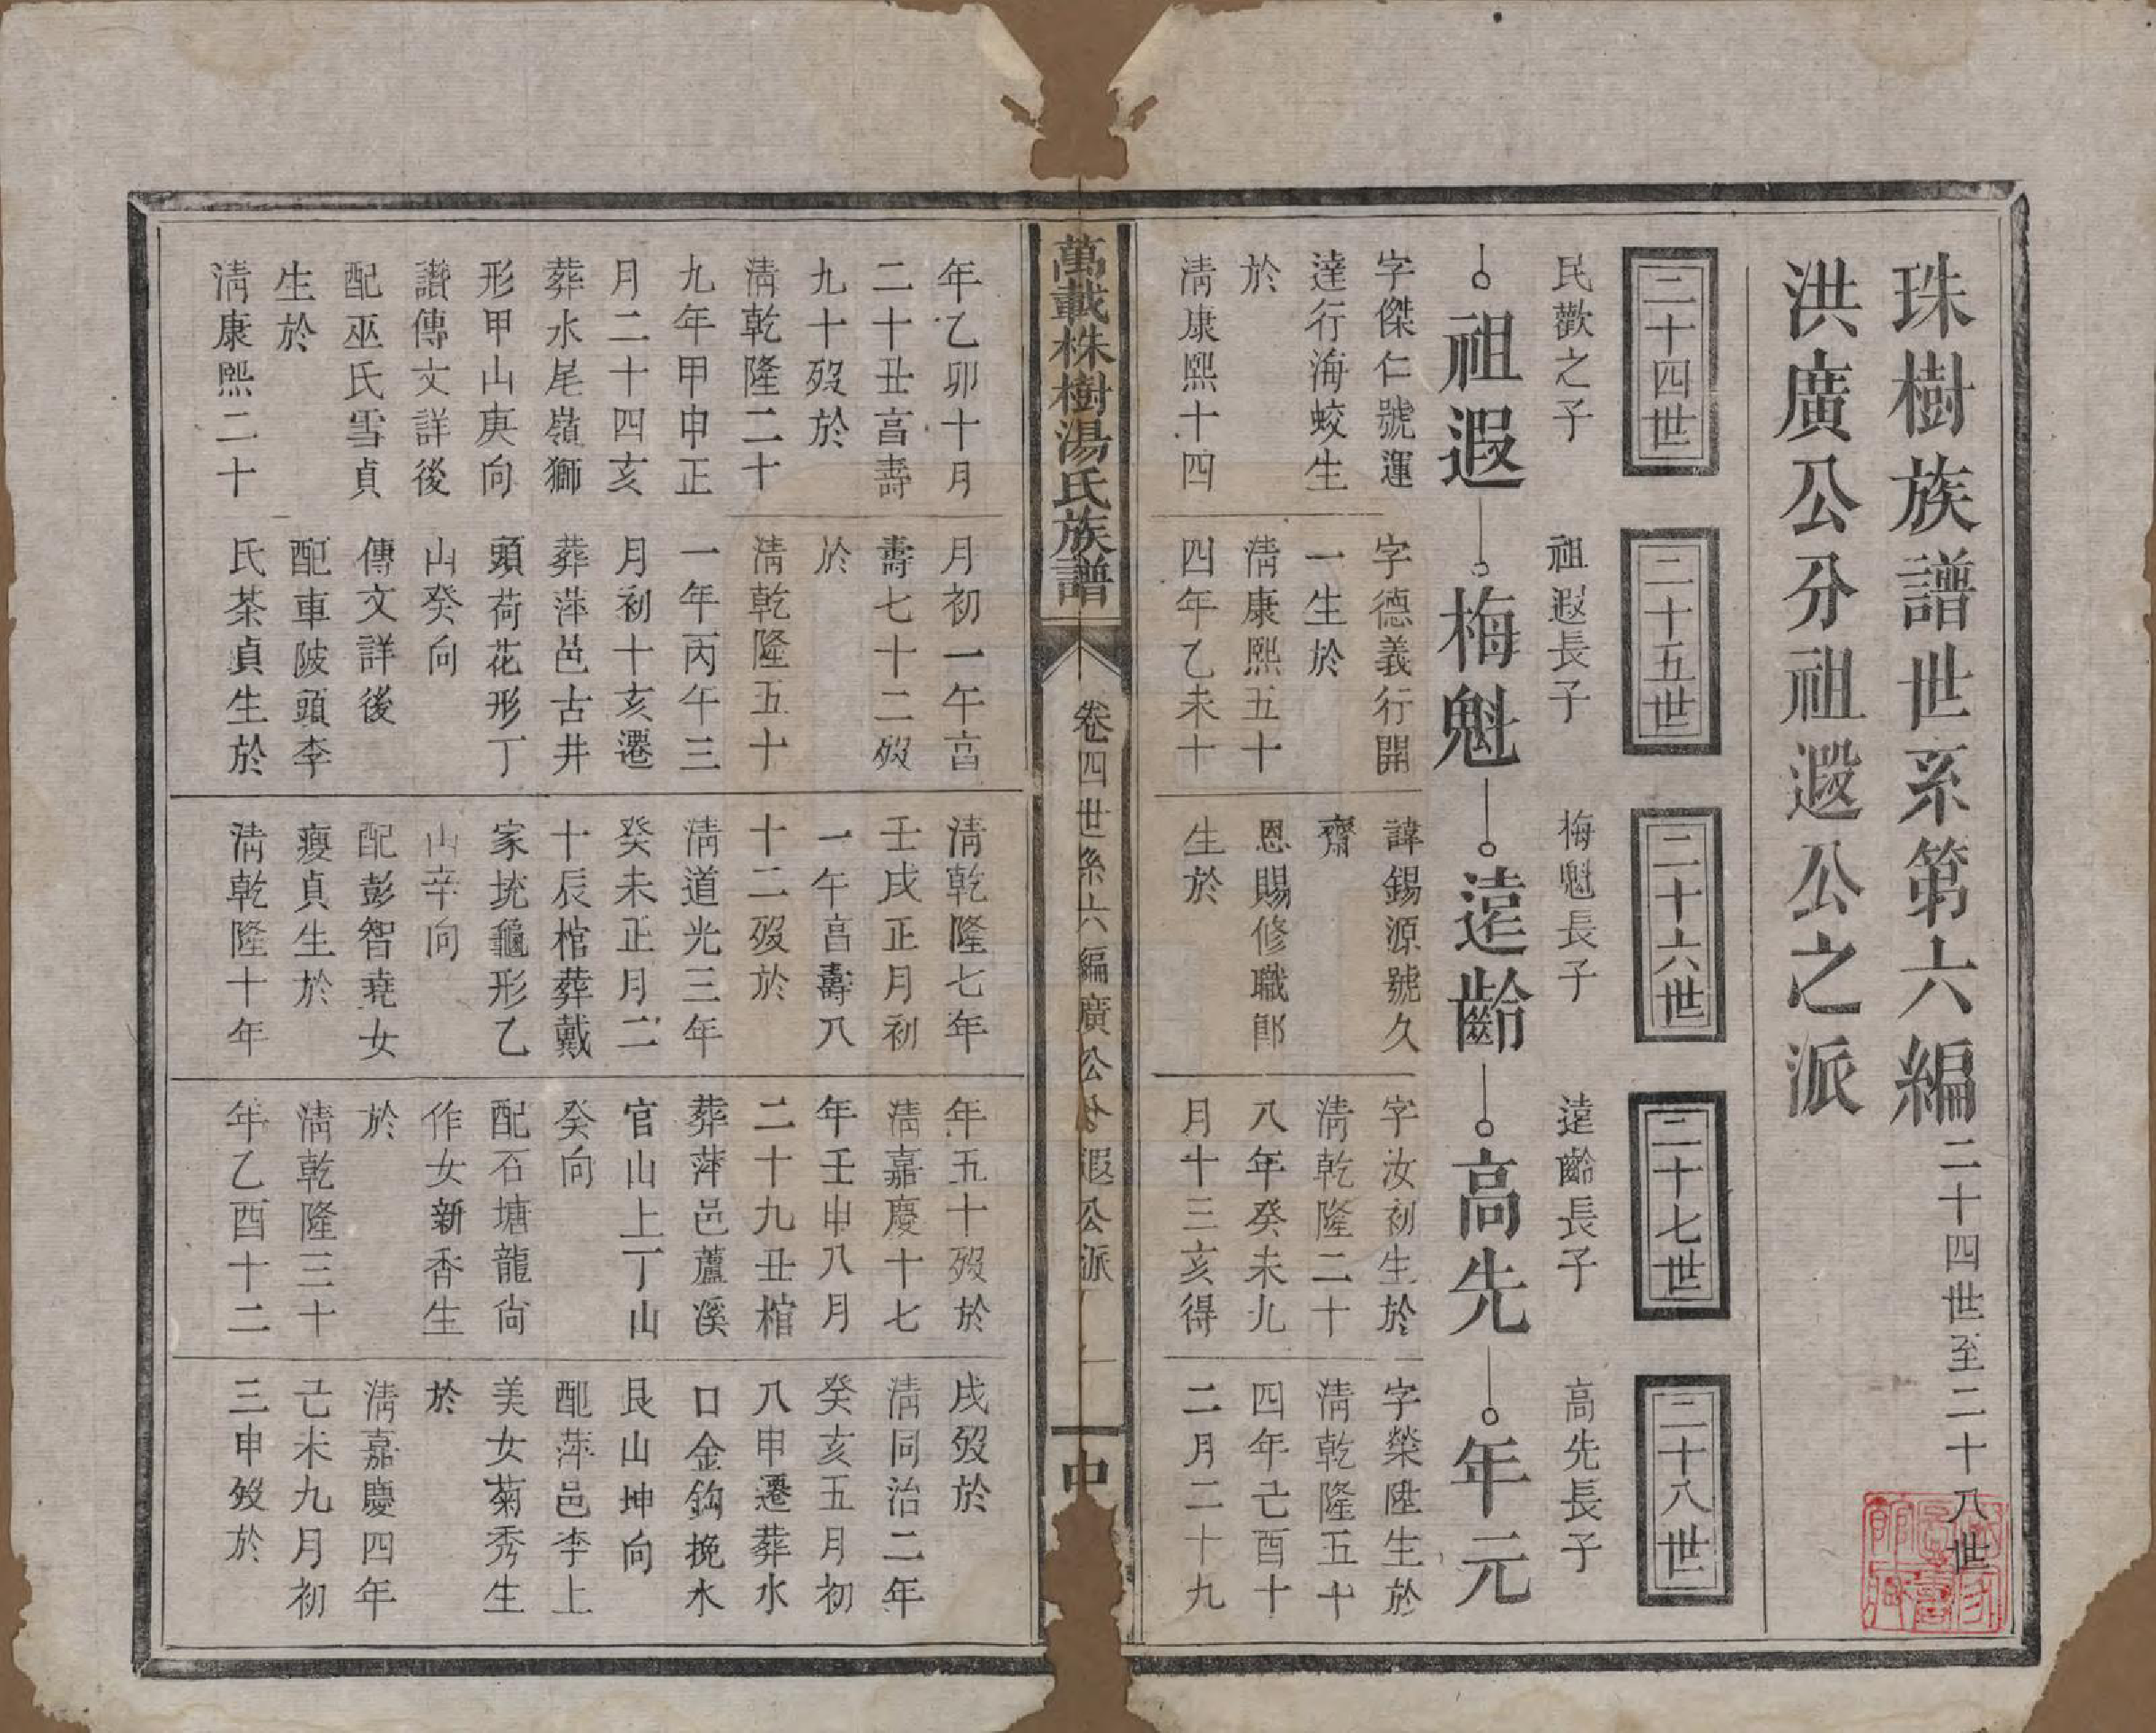 珠樹族譜世系第六編二十四世至二十八世
洪廣公分祖遐公之派
二十四世
二十五世
二十六世
二十七世
二十八世
民歡之子
祖遐長子
梅魁長子
遠齡長子
高先長子
祖遐
梅魁
遠齡
高先
年元
字傑仁號運
達行海蛟生
於
淸康熙十四
字德義行開
一生於
淸康熙五十
四年乙未十
諱錫源號久
齋
恩賜修職郎
生於
字汝初生於
淸乾隆二十
八年癸未九
月十三亥得
字榮陞生於
淸乾隆五十
四年己酉十
二月二十九
萬載株樹湯氏族譜
卷四世系六編廣公分遐公派
一
中
年乙卯十月
二十丑亯壽
九十歿於
淸乾隆二十
九年甲申正
月二十四亥
葬水尾嶺獅
形甲山庚向
讃傳文詳後
配巫氏雪貞
生於
淸康熙二十
月初一午亯
壽七十二歿
於
淸乾隆五十
一年丙午三
月初十亥遷
葬萍邑古井
頭荷花形丁
山癸向
傳文詳後
配車陂頭李
氏茶貞生於
淸乾隆七年
壬戌正月初
一午亯壽八
十二歿於
淸道光三年
癸未正月二
十辰棺葬戴
家坑龜形乙
山辛向
配彭智堯女
瘦貞生於
淸乾隆十年
年五十歿於
淸嘉慶十七
年壬申八月
二十九丑棺
葬萍邑蘆溪
官山上丁山
癸向
配石塘龍尙
作女新香生
於
淸乾隆三十
年乙酉十二
戌歿於
淸同治二年
癸亥五月初
八申遷葬水
口金鈎挽水
艮山坤向
配萍邑李上
美女菊秀生
於
淸嘉慶四年
己未九月初
三申歿於